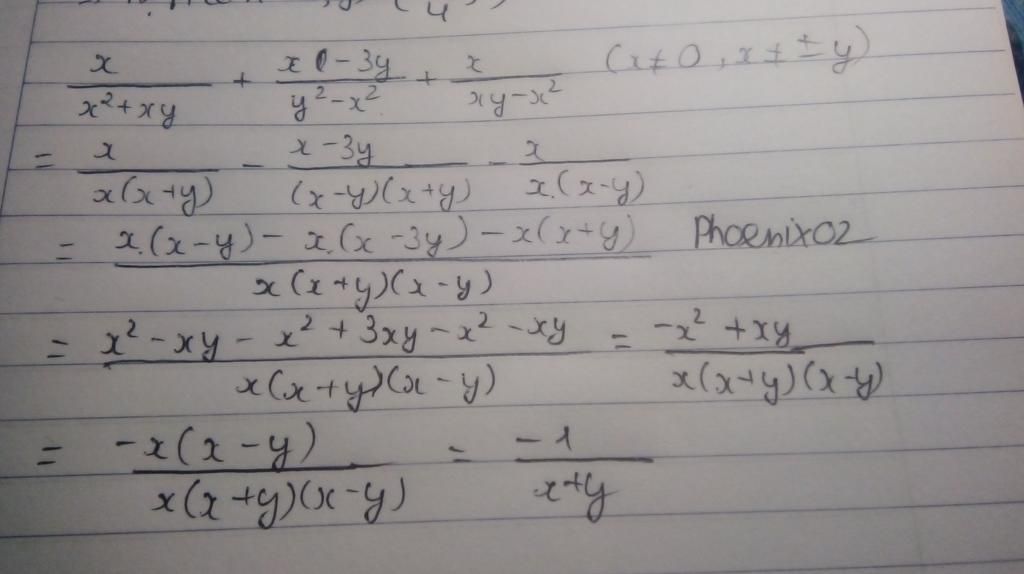 x/(x²+xy) + (x - 3y)/(y²-x²) + x/(xy-x²) (x≠0, x≠±y)
= x/(x(x+y)) - (x-3y)/((x-y)(x+y)) - x/(x.(x-y))
= (x.(x-y) - x.(x-3y) - x(x+y))/(x(x+y)(x-y)) Phoenix02
= (x²-xy - x² + 3xy - x² - xy)/(x(x+y)(x-y)) = (-x²+xy)/(x(x+y)(x-y))
= (-x(x-y))/(x(x+y)(x-y)) = (-1)/(x+y)